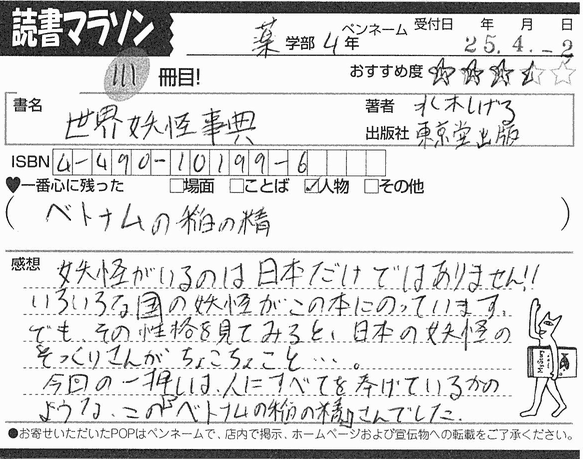 読書マラソン
薬 学部 4 年 ペンネーム 受付日 年 月 日
25.4.-2
111 冊目! おすすめ度 ☆☆☆☆☆
書名 世界妖怪事典
著者 水木しげる
出版社 東京堂出版
ISBN 4-490-10199-6
♥一番心に残った □場面 □ことば ☑人物 □その他
(ベトナムの稲の精)
感想 妖怪がいるのは日本だけではありません!!
いろいろな国の妖怪がこの本にのっています。
でも、その性格を見てみると、日本の妖怪の
そっくりさんがちょこちょこと…。
今回の一押しは、人にすべてを捧げているかの
ような、この「ベトナムの稲の精」さんでした。
●お寄せいただいたPOPはペンネームで、店内で掲示、ホームページおよび宣伝物への転載をご了承ください。